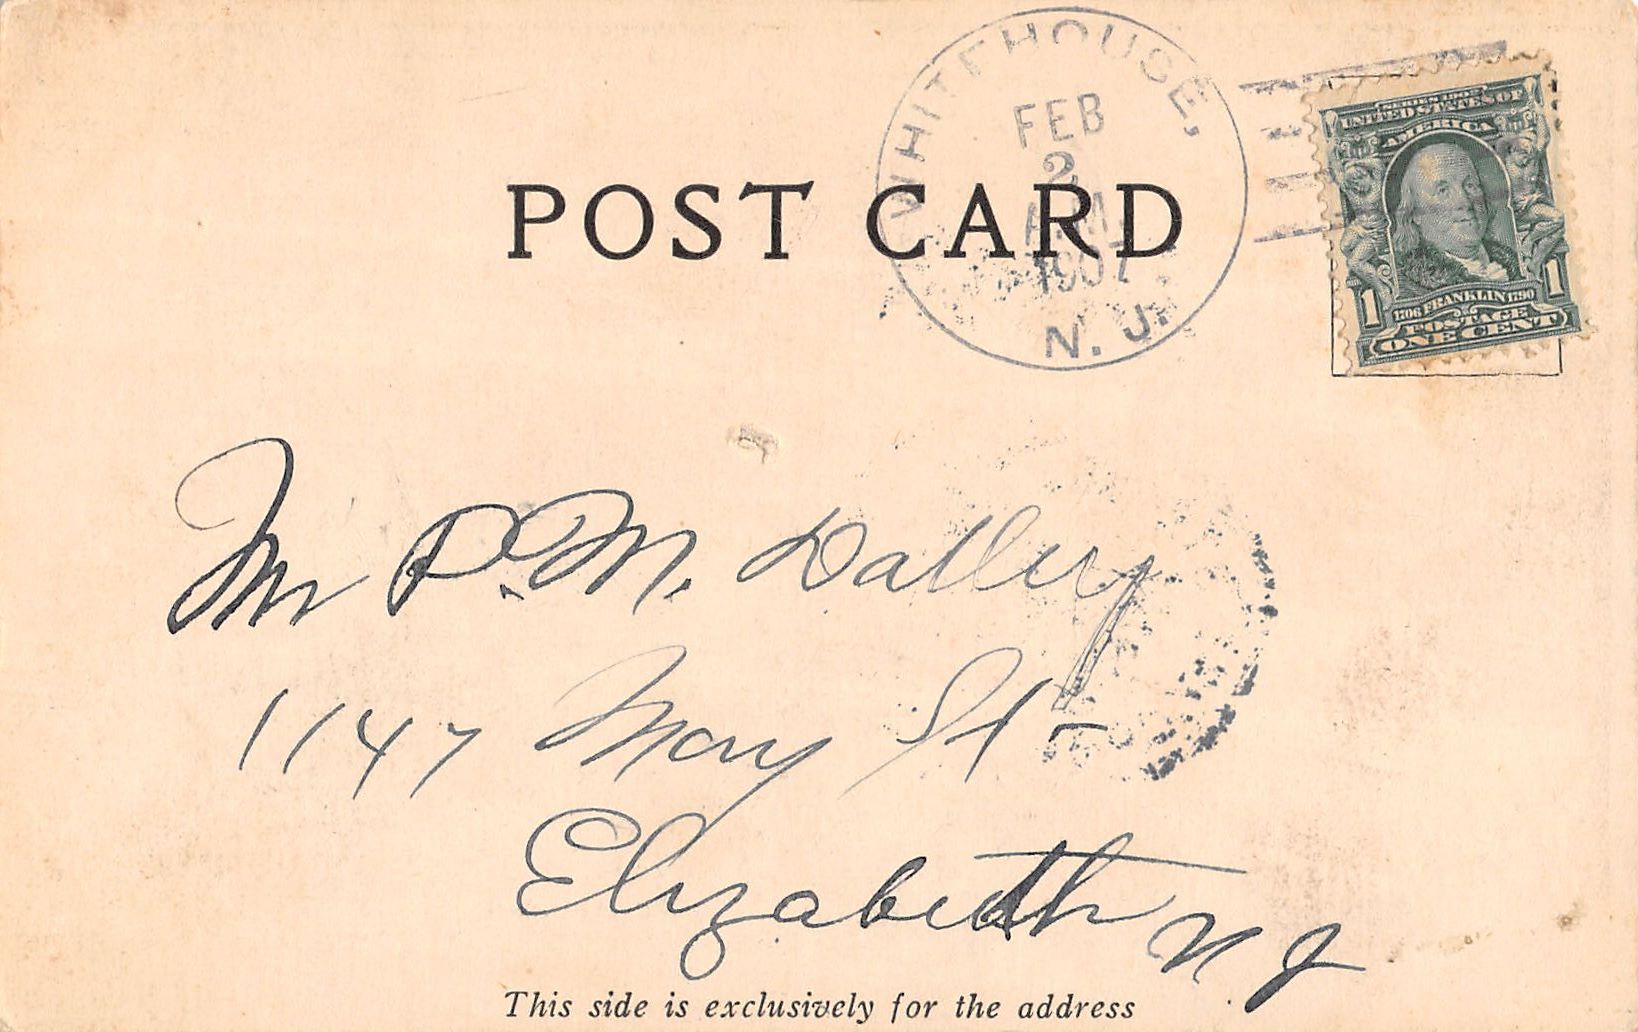 WHITEHOUSE,
FEB
2
A.M.
1907
N. J.
SERIES 1902
UNITED STATES OF
AMERICA
1706 FRANKLIN 1790
1 1
POSTAGE
ONE CENT
POST CARD
Mr P. M. Dalley
1147 Mary St -
Elizabeth N J
This side is exclusively for the address